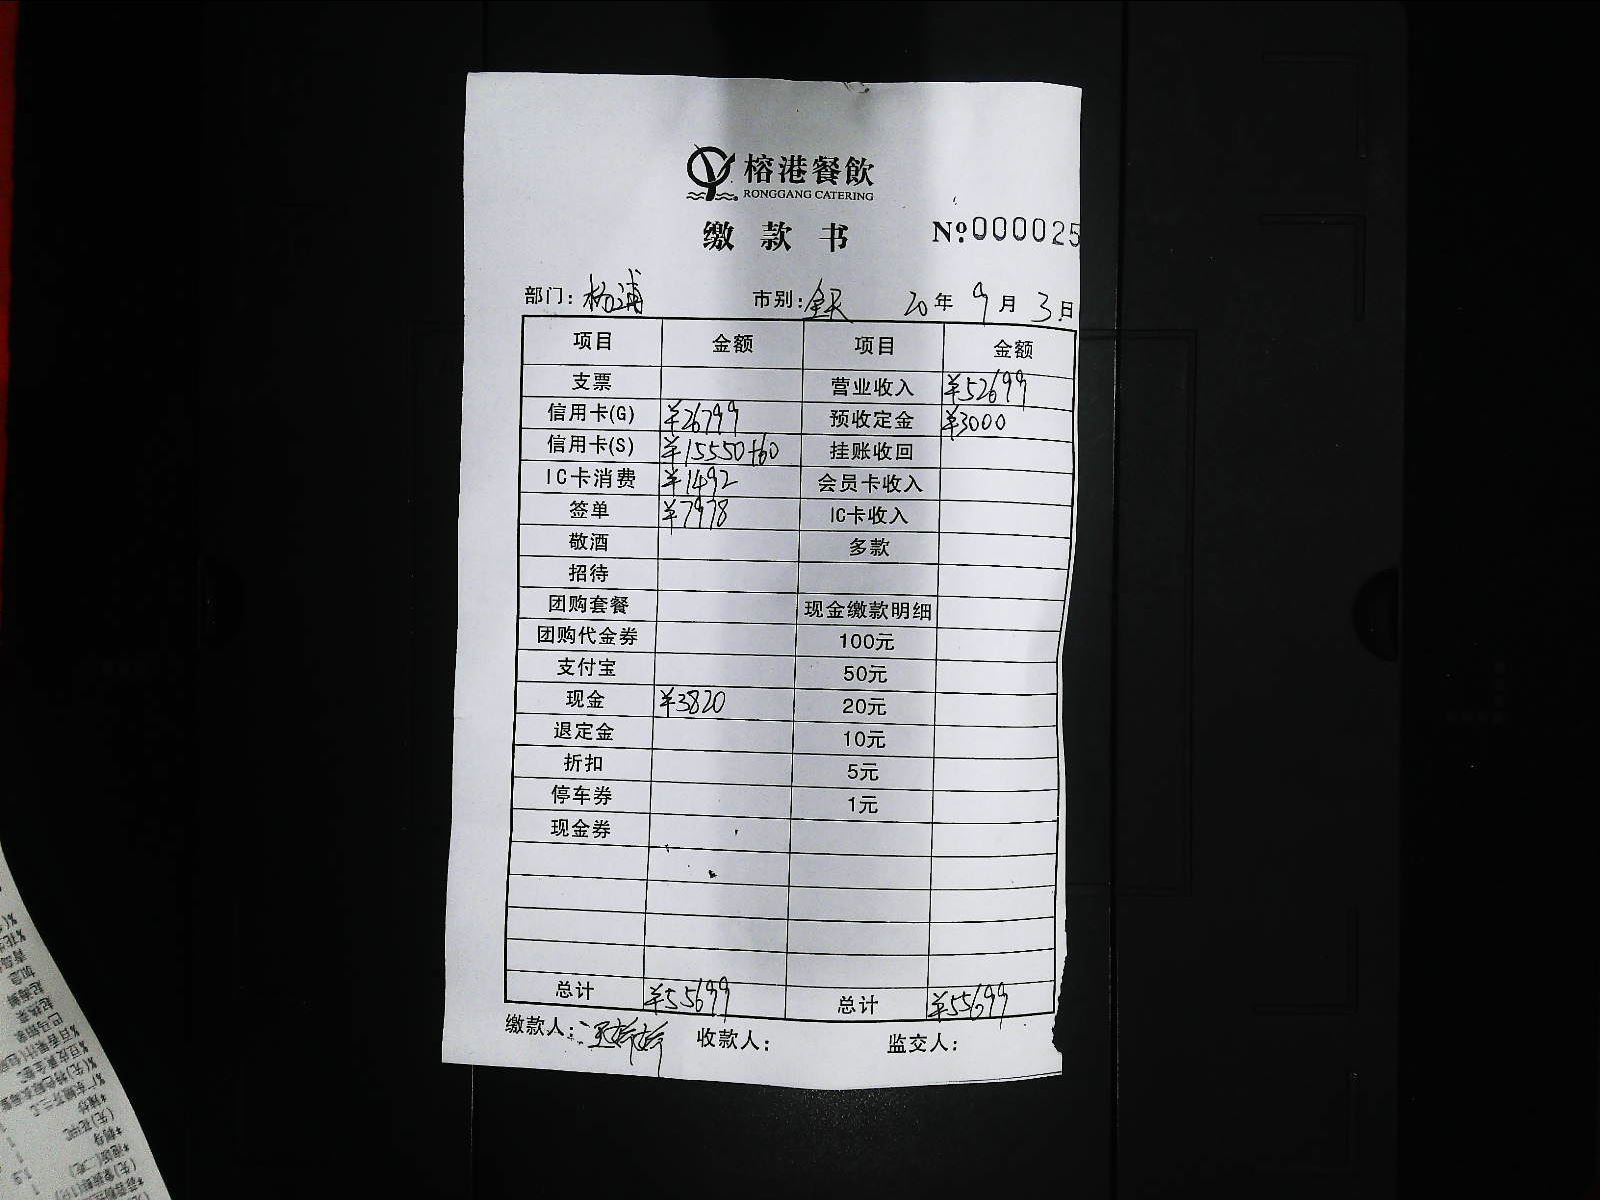 榕港餐飲
RONGGANG CATERING
缴 款 书 Nº:000025
部门: 杨浦 市别: 全天 20年 9月 3日
项目 金额 项目 金额
支票 营业收入 ¥52699
信用卡(G) ¥26799 预收定金 ¥3000
信用卡(S) ¥15550+60 挂账收回
IC卡消费 ¥1492 会员卡收入
签单 ¥7978 IC卡收入
敬酒 多款
招待
团购套餐 现金缴款明细
团购代金券 100元
支付宝 50元
现金 ¥3820 20元
退定金 10元
折扣 5元
停车券 1元
现金券
总计 ¥55699 总计 ¥55699
缴款人: 收款人: 监交人: